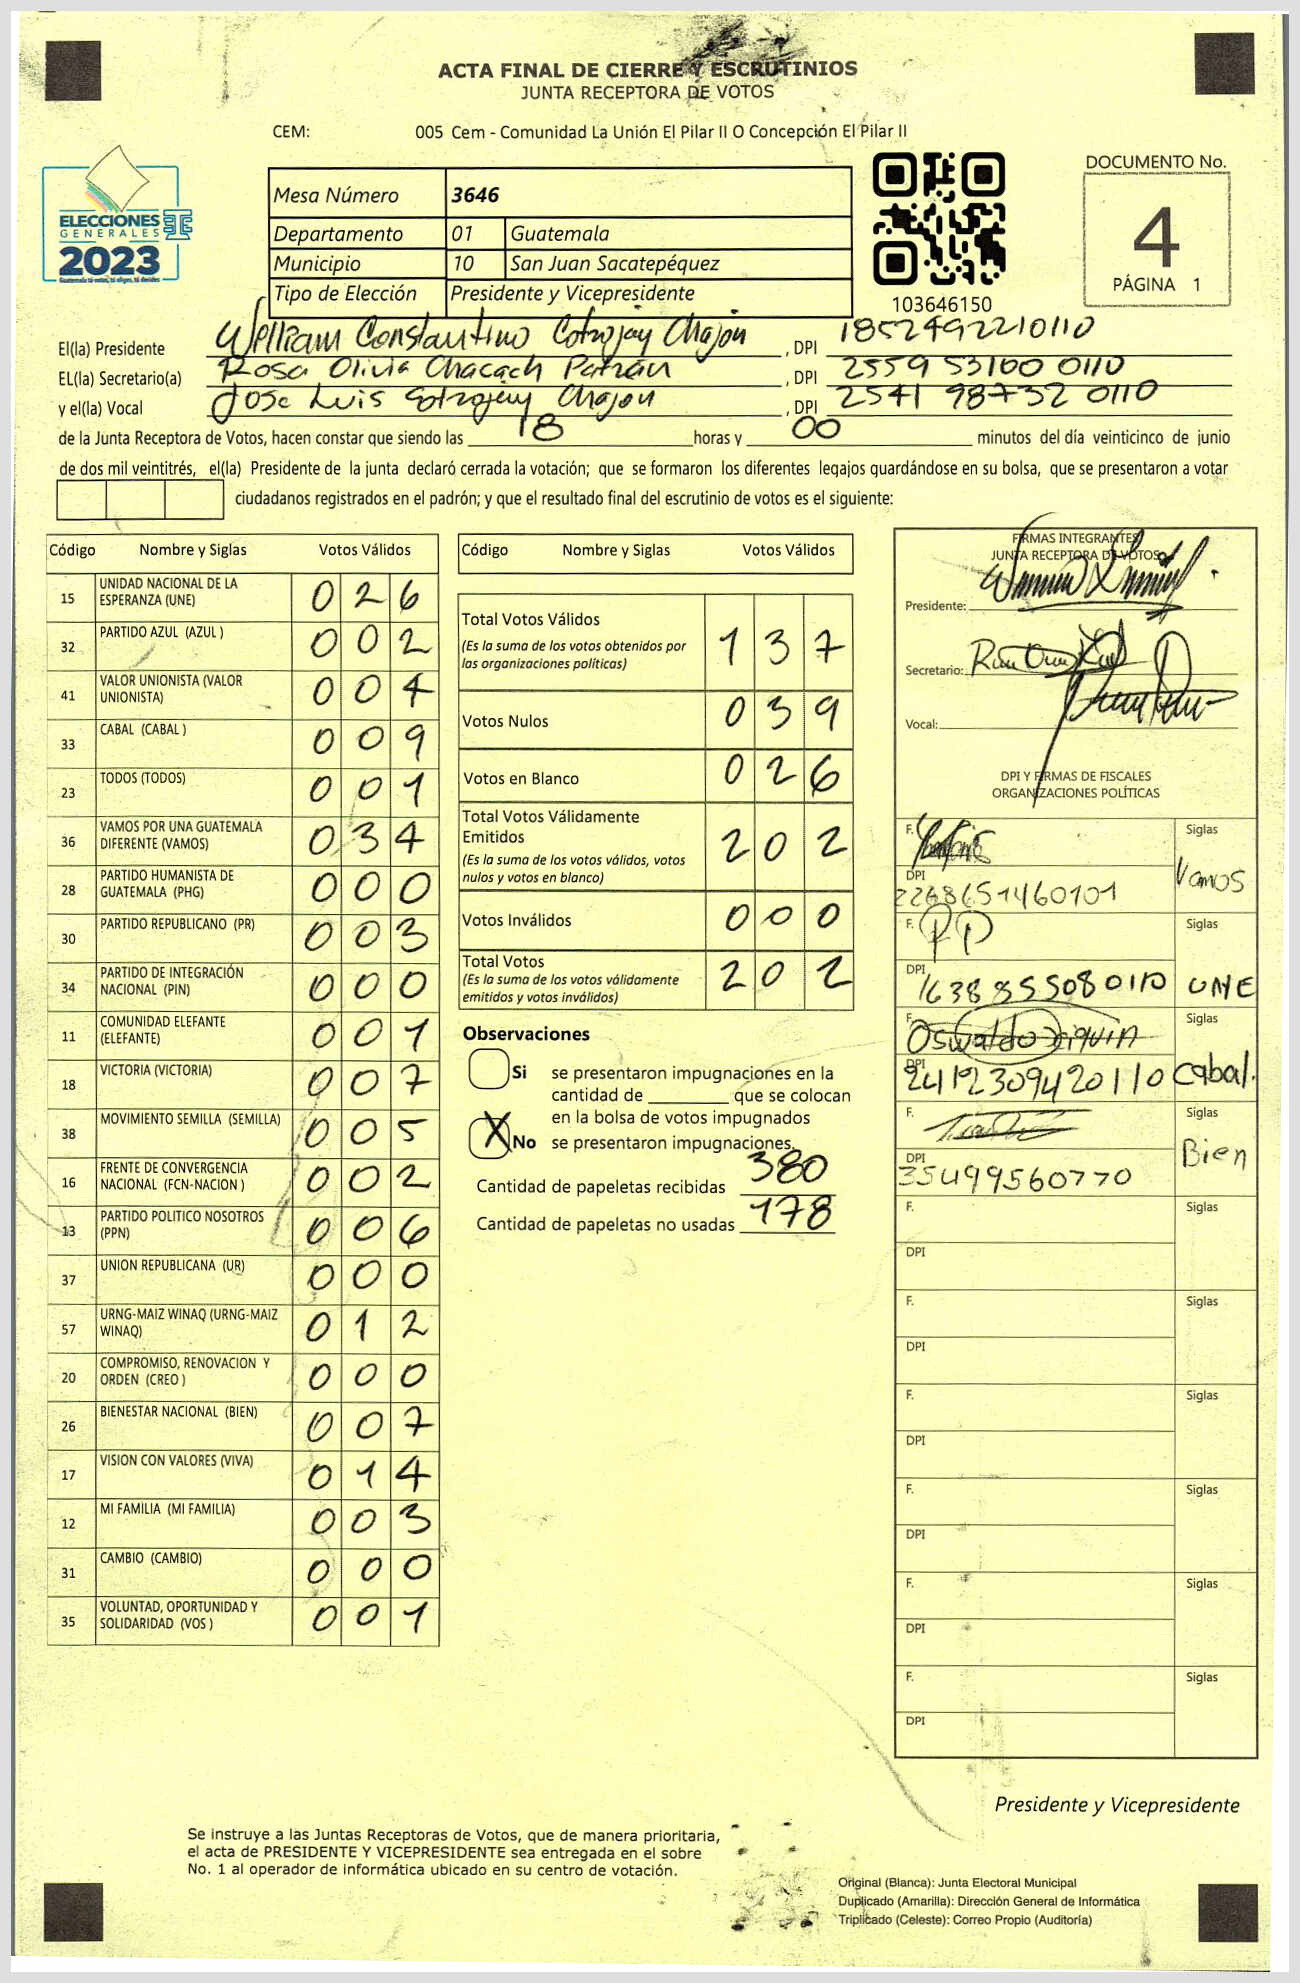 ACTA FINAL DE CIERRE Y ESCRUTINIOS
JUNTA RECEPTORA DE VOTOS
CEM: 005 Cem - Comunidad La Unión El Pilar II O Concepción El Pilar II
ELECCIONES
GENERALES
2023
Guatemala tú votas, tú eliges, tú decides
Mesa Número 3646
Departamento 01 Guatemala
Municipio 10 San Juan Sacatepéquez
Tipo de Elección Presidente y Vicepresidente
103646150
DOCUMENTO No.
4
PÁGINA 1
El(la) Presidente Constantino Cotzojay Chajón , DPI 1852492210110
EL(la) Secretario(a) Rosa Olivia Chacach Patzán , DPI 2559 53100 0110
y el(la) Vocal Jose Luis Cotzojay Chajon , DPI 2541 98732 0110
de la Junta Receptora de Votos, hacen constar que siendo las 18 horas y 00 minutos del día veinticinco de junio
de dos mil veintitrés, el(la) Presidente de la junta declaró cerrada la votación; que se formaron los diferentes legajos guardándose en su bolsa, que se presentaron a votar
ciudadanos registrados en el padrón; y que el resultado final del escrutinio de votos es el siguiente:
Código Nombre y Siglas Votos Válidos
15 UNIDAD NACIONAL DE LA ESPERANZA (UNE) 0 2 6
32 PARTIDO AZUL (AZUL ) 0 0 2
41 VALOR UNIONISTA (VALOR UNIONISTA) 0 0 4
33 CABAL (CABAL ) 0 0 9
23 TODOS (TODOS) 0 0 1
36 VAMOS POR UNA GUATEMALA DIFERENTE (VAMOS) 0 3 4
28 PARTIDO HUMANISTA DE GUATEMALA (PHG) 0 0 0
30 PARTIDO REPUBLICANO (PR) 0 0 3
34 PARTIDO DE INTEGRACIÓN NACIONAL (PIN) 0 0 0
11 COMUNIDAD ELEFANTE (ELEFANTE) 0 0 1
18 VICTORIA (VICTORIA) 0 0 7
38 MOVIMIENTO SEMILLA (SEMILLA) 0 0 5
16 FRENTE DE CONVERGENCIA NACIONAL (FCN-NACION ) 0 0 2
13 PARTIDO POLITICO NOSOTROS (PPN) 0 0 6
37 UNION REPUBLICANA (UR) 0 0 0
57 URNG-MAIZ WINAQ (URNG-MAIZ WINAQ) 0 1 2
20 COMPROMISO, RENOVACION Y ORDEN (CREO ) 0 0 0
26 BIENESTAR NACIONAL (BIEN) 0 0 7
17 VISION CON VALORES (VIVA) 0 1 4
12 MI FAMILIA (MI FAMILIA) 0 0 3
31 CAMBIO (CAMBIO) 0 0 0
35 VOLUNTAD, OPORTUNIDAD Y SOLIDARIDAD (VOS ) 0 0 1
Código Nombre y Siglas Votos Válidos
Total Votos Válidos 1 3 7
(Es la suma de los votos obtenidos por
las organizaciones políticas)
Votos Nulos 0 3 9
Votos en Blanco 0 2 6
Total Votos Válidamente
Emitidos 2 0 2
(Es la suma de los votos válidos, votos
nulos y votos en blanco)
Votos Inválidos 0 0 0
Total Votos 2 0 2
(Es la suma de los votos válidamente
emitidos y votos inválidos)
Observaciones
Si se presentaron impugnaciones en la
cantidad de ________ que se colocan
en la bolsa de votos impugnados
X No se presentaron impugnaciones.
Cantidad de papeletas recibidas 380
Cantidad de papeletas no usadas 178
FIRMAS INTEGRANTES
JUNTA RECEPTORA DE VOTOS
Presidente:
Secretario:
Vocal:
DPI Y FIRMAS DE FISCALES
ORGANIZACIONES POLÍTICAS
F. Siglas
DPI Vamos
2268651460101
F. PP Siglas
DPI 1638 85508 0110 UNE
F. Oswaldo Siglas
DPI 2412309420110 Cabal.
F. Siglas
DPI Bien
35499560770
F. Siglas
DPI
F. Siglas
DPI
F. Siglas
DPI
F. Siglas
DPI
F. Siglas
DPI
F. Siglas
DPI
Presidente y Vicepresidente
Se instruye a las Juntas Receptoras de Votos, que de manera prioritaria,
el acta de PRESIDENTE Y VICEPRESIDENTE sea entregada en el sobre
No. 1 al operador de informática ubicado en su centro de votación.
Original (Blanca): Junta Electoral Municipal
Duplicado (Amarilla): Dirección General de Informática
Triplicado (Celeste): Correo Propio (Auditoría)